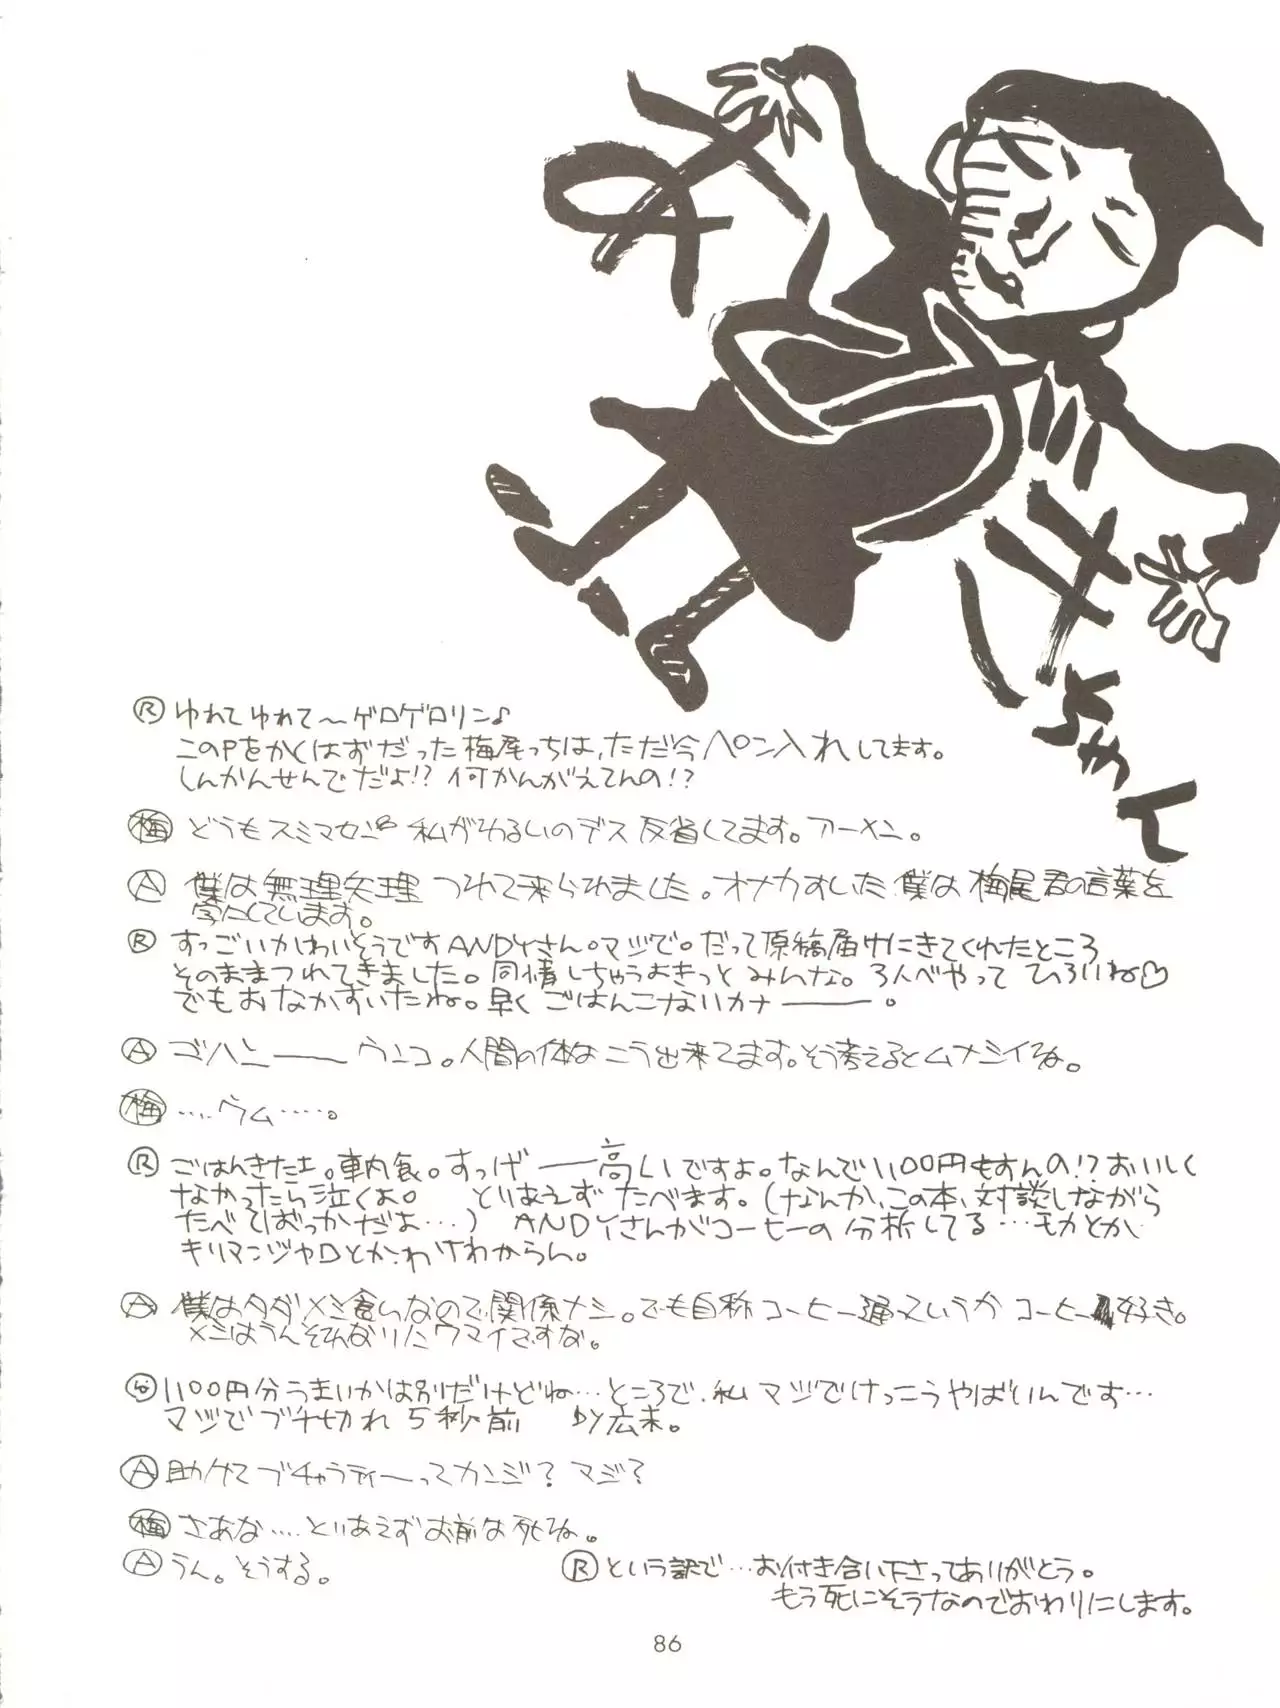 ちゃん
Ⓡ ゆれてゆれて〜ゲロゲロリン♪
このPをかくはずだった梅尾っちは、ただ今ペン入れしてます。
しんかんせんでだよ!? 何かんがえてんの!?
梅 どうもスミマセン 私がわるいのデス 反省してます。アーメン。
Ⓐ 僕は無理矢理つれて来られました。オナカすいた僕は梅尾君の言葉を
字にしています。
Ⓡ すっごいかわいそうですANDYさん。マジで。だって原稿届けにきてくれたところ
そのままつれてきました。同情しちゃうよきっとみんな。3人べやってひろいね♡
でもおなかすいたね。早くごはんこないカナ———。
Ⓐ ゴハン——ウンコ。人間の体はこう出来てます。そう考えるとムナシイね。
梅 ‥‥ウム‥‥‥。
Ⓡ ごはんきたよ。車内食。すっげ——高いですよ。なんで1100円もすんの!? おいしく
なかったら泣くよ。 とりあえずたべます。(なんか、この本、対談しながら
たべてばっかだよ…) ANDYさんがコーヒーの分析してる…モカとか
キリマンジャロとか、わけわからん。
Ⓐ 僕はタダメシ食いなので関係ナシ。でも自称コーヒー通っていうかコーヒー好き。
メシはうんそれなりにウマイですな。
Ⓡ 1100円分うまいかは別だけどね…ところで、私マジでけっこうやばいんです…
マジでブチ切れ5秒前 by広末。
Ⓐ 助けてブチャラティーってカンジ? マジ?
梅 さあな‥‥とりあえずお前は死ね。
Ⓐ うん。そうする。
Ⓡ という訳で…お付き合い下さってありがとう。
もう死にそうなのでおわりにします。
86